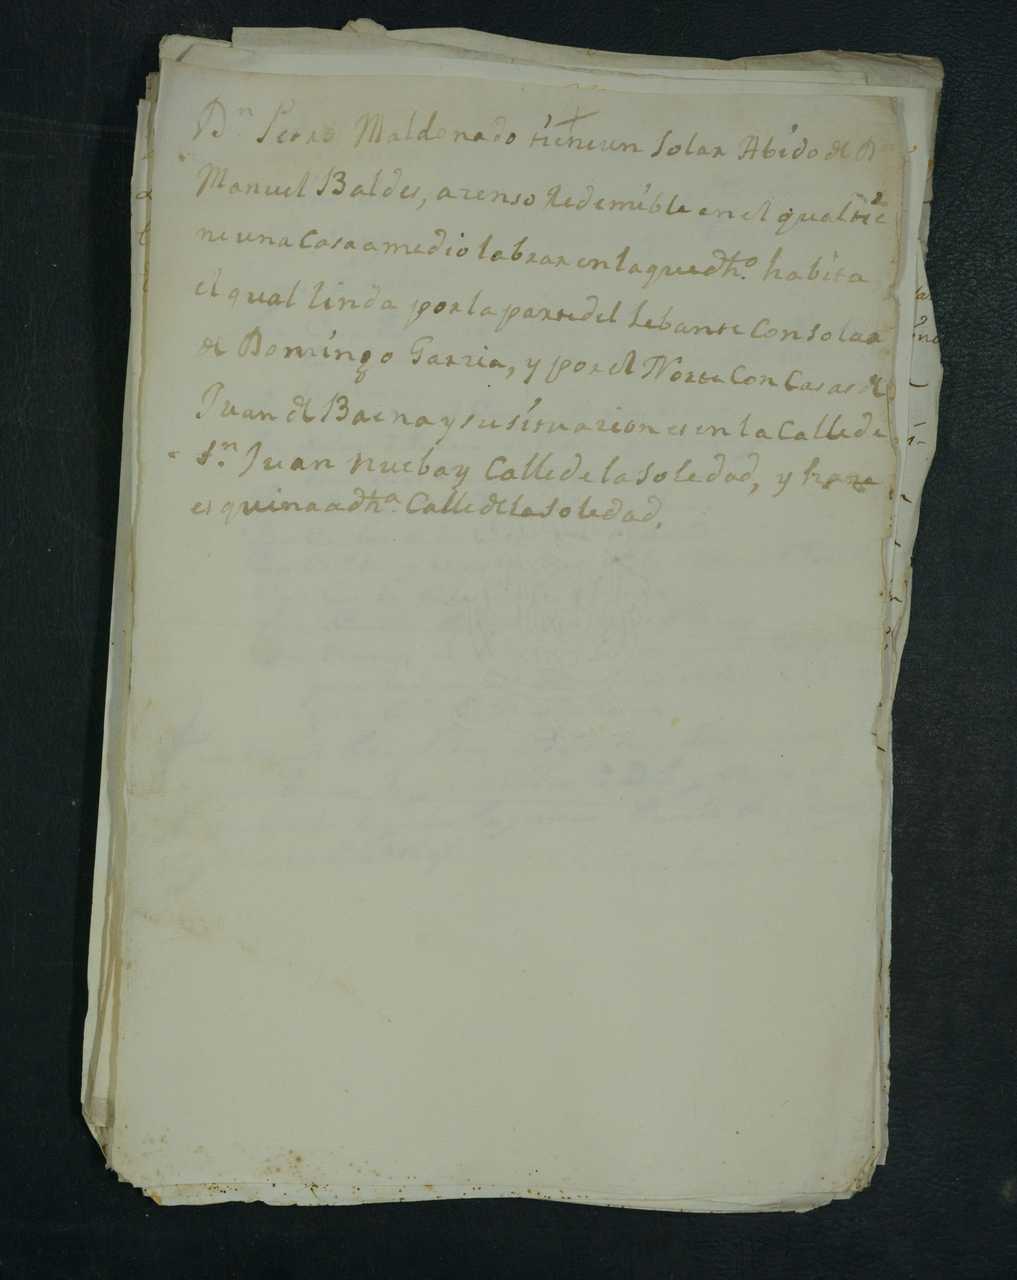 +
Dn Pedro Maldonado tiene un Solar Abido de Dn
Manuel Baldes, a zenso Redemible en el qual tie
ne una Casa a medio labrar en la que dho. habita
el qual linda por la parte del Lebante Con Solar
de Domingo Garzia, y por el Norte Con Casas de
Juan de Baena y su situazion es en la Calle de
Sn. Juan nueba y Calle de la Soledad, y haze
esquina a dha. Calle de la Soledad.